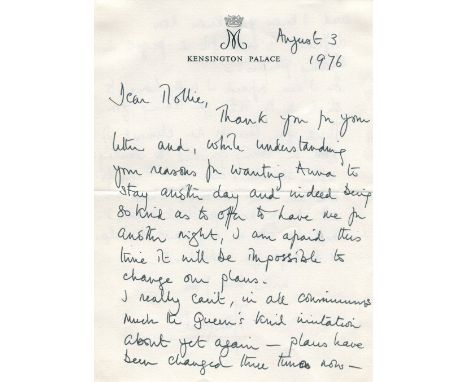 M
KENSINGTON PALACE
August 3
1976
Dear Mollie,
Thank you for your
letter and, while understanding
your reasons for wanting Anna to
stay another day and indeed being
so kind as to offer to have me for
another night, I am afraid this
time it will be impossible to
change our plans.
I really can't, in all
much the Queen's kind invitation
about yet again — plans have
been changed three times now —